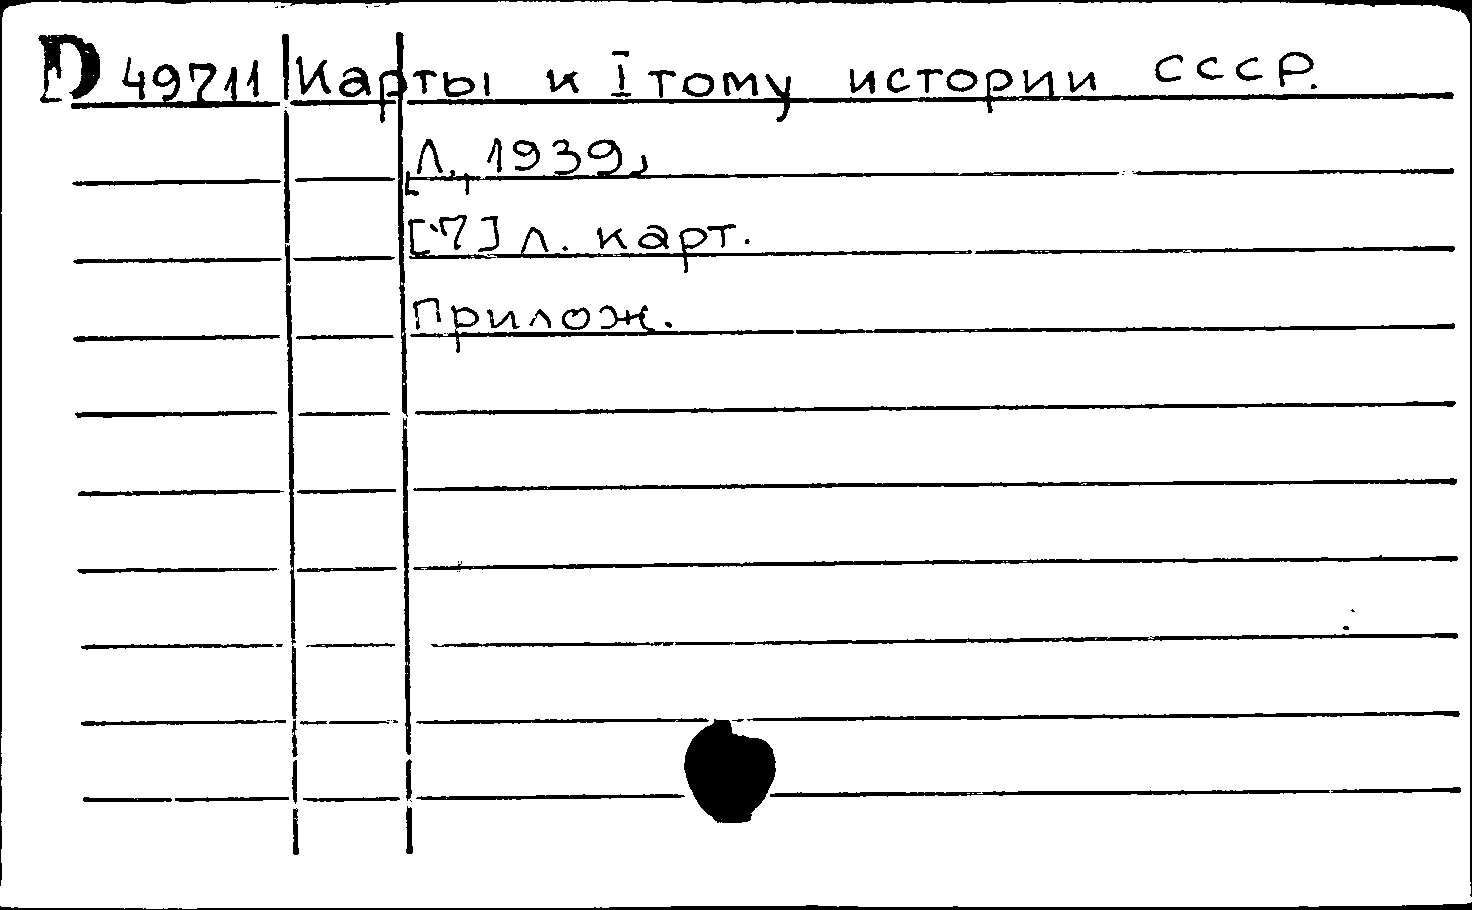 D 49711 Карты к I тому истории СССР.
Л., 1939,
[7] л. карт.
Прилож.